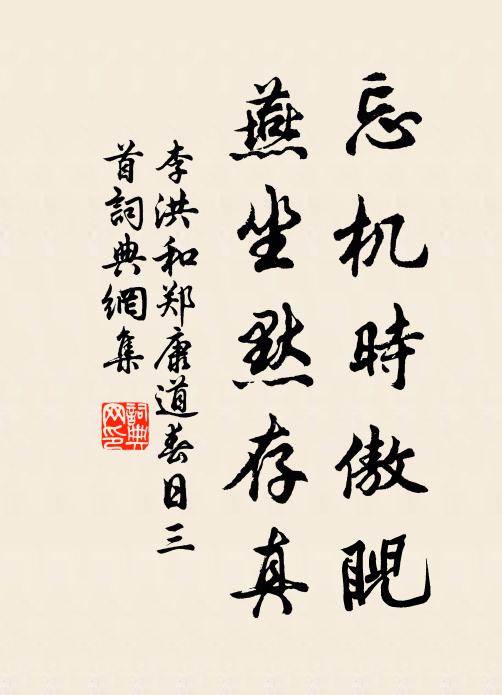 忘机時傲睨
燕坐默存真
李洪和郑康道春日三
首詞典網集
詞典网印